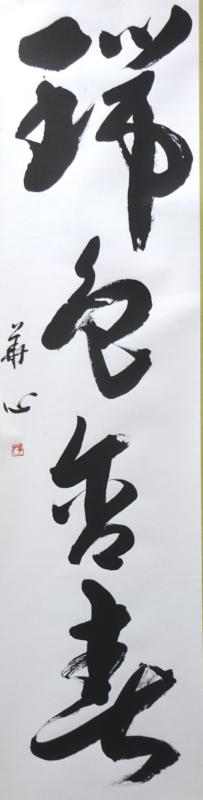 瑞色含春
華心